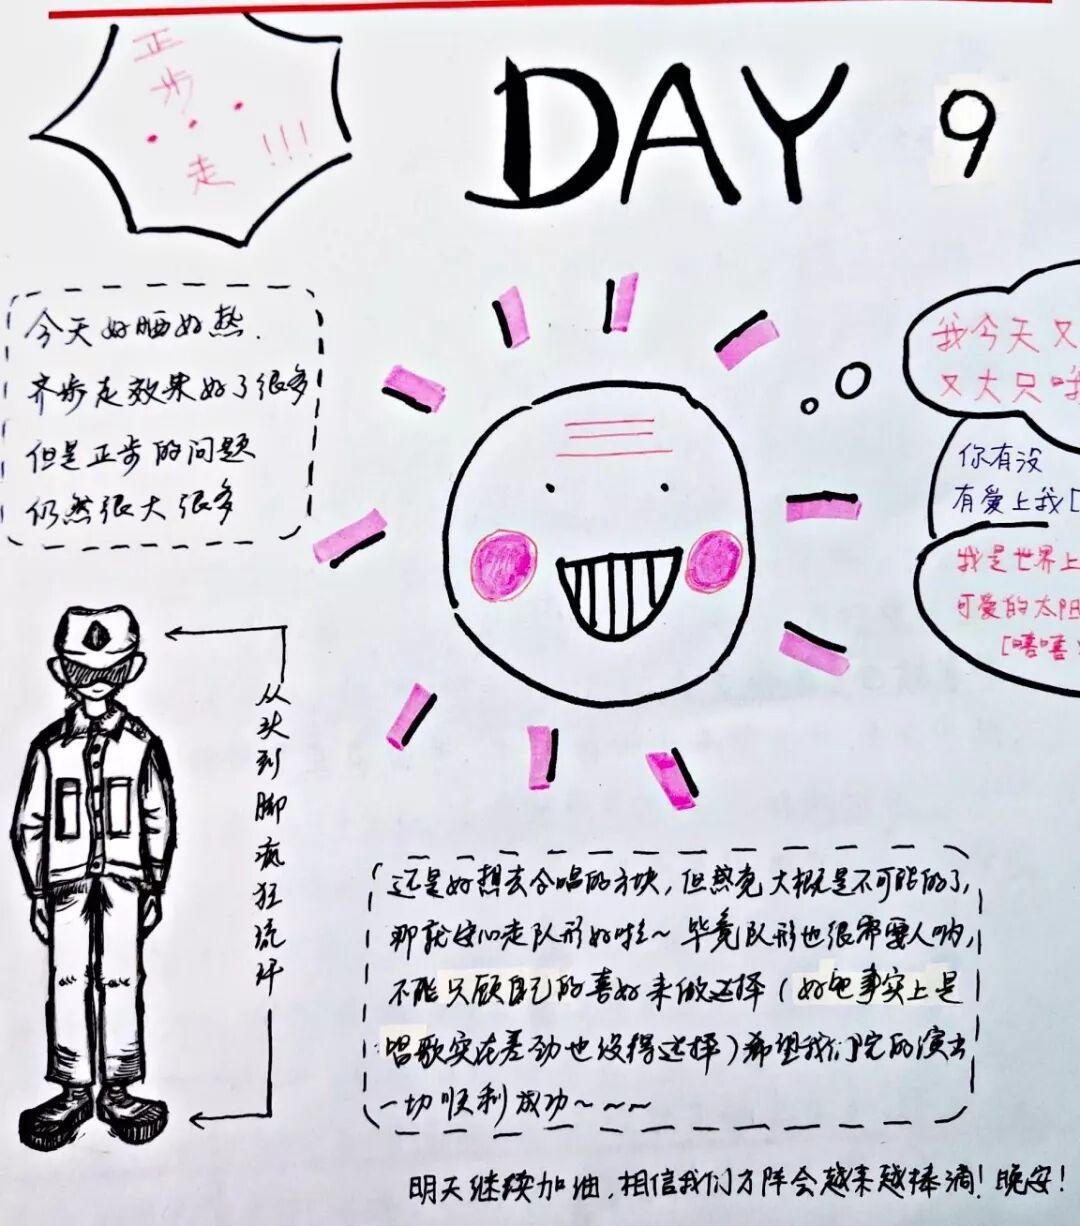 正步
走
!!!
DAY 9
今天好晒好热.
齐步走效果好了很多
但是正步的问题
仍然很大很多
我今天又
又大只哦
你有没
有爱上我[
我是世界上
可爱的太阳
[嘻嘻
从头到脚疯狂流汗
还是好想去合唱的方块,但想竟大概是不可能的了,
那就安心走队形好啦~毕竟队形也很需要人呐,
不能只顾自己的喜好来做选择(好吧事实上是
唱歌实在差劲也没得选择)希望我们院的演出
一切顺利成功~~~
明天继续加油,相信我们方阵会越来越棒滴!晚安!